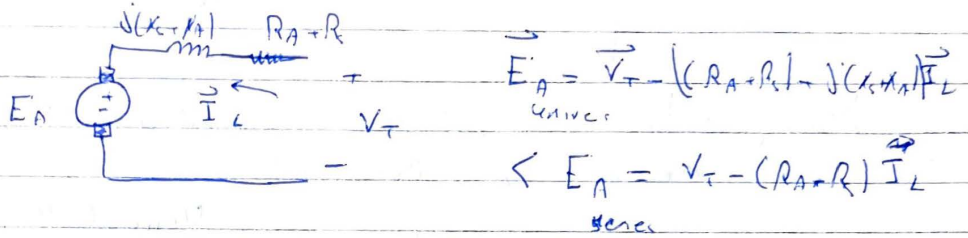 j(Xs+XA) RA+Rs
EA
I⃗L
+
VT
-
E⃗A = V⃗T - ((RA+Rs) + j(Xs+XA)) I⃗L
univer
< EA = VT - (RA+Rs) I⃗L
series